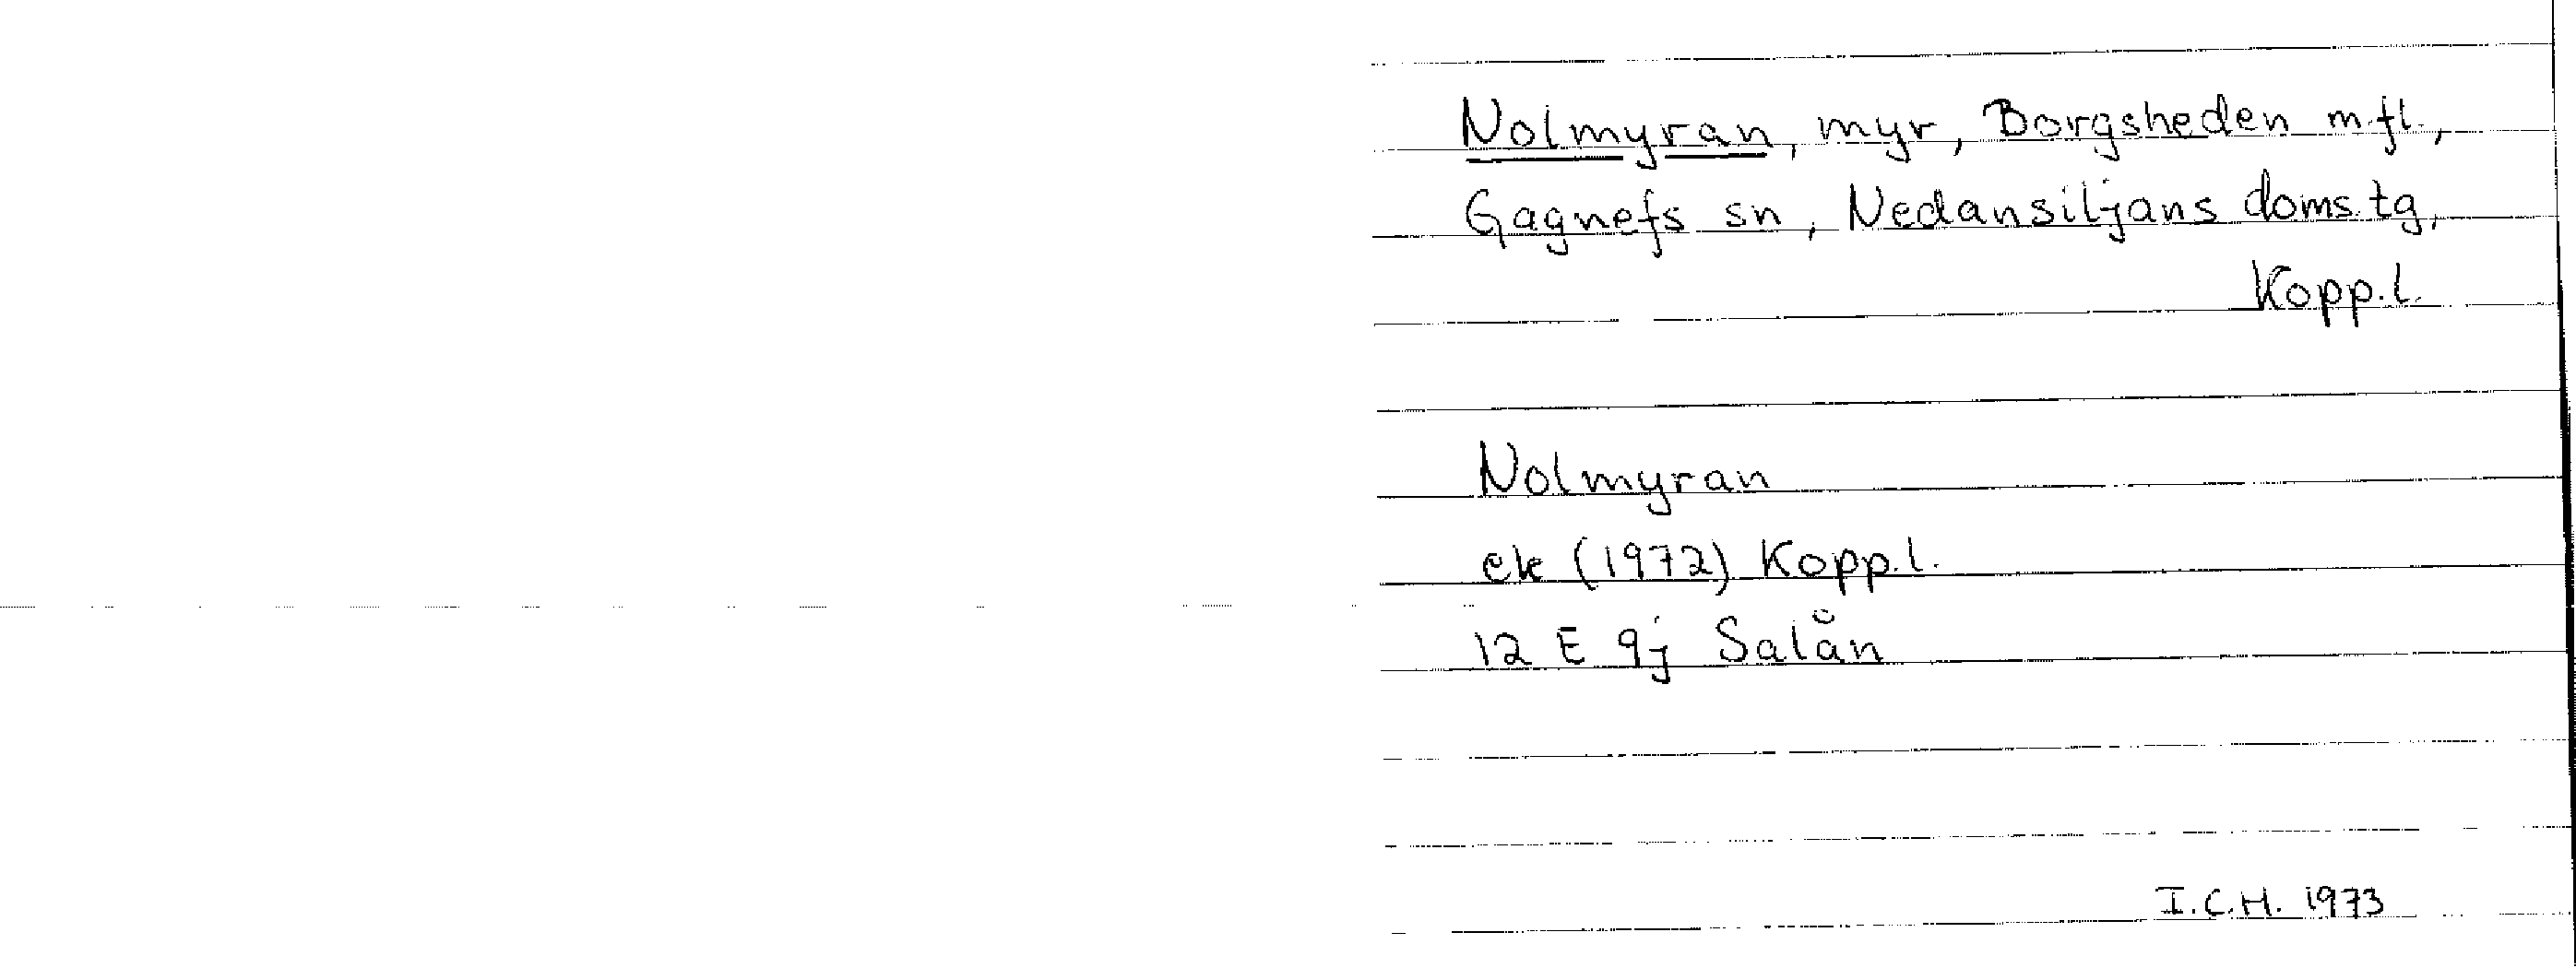 Nolmyran, myr, Borgsheden m.fl.,
Gagnefs sn, Nedansiljans doms.tg,
Kopp.l.
Nolmyran
ek (1972) Kopp.l.
12 E 9j Salån
I.C.H. 1973